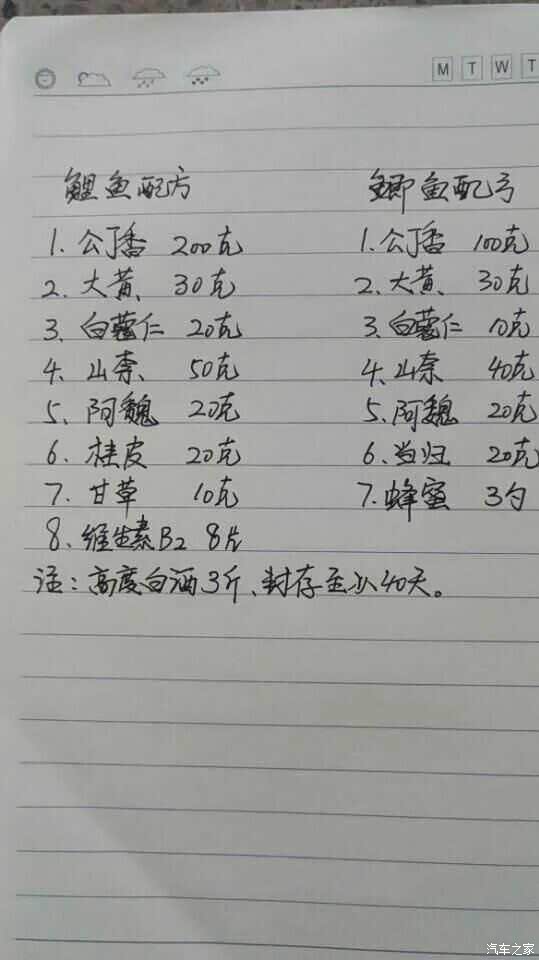 M T W T
鲤鱼配方
1. 公丁香 200克
2. 大黄、 30克
3. 白蔻仁 20克
4. 山奈、 50克
5. 阿魏 20克
6. 桂皮 20克
7. 甘草 10克
8. 维生素B2 8片
鲫鱼配方
1. 公丁香 100克
2. 大黄、 30克
3. 白蔻仁 10克
4. 山奈 40克
5. 阿魏 20克
6. 当归 20克
7. 蜂蜜 3勺
注：高度白酒3斤、封存至少40天。
汽车之家